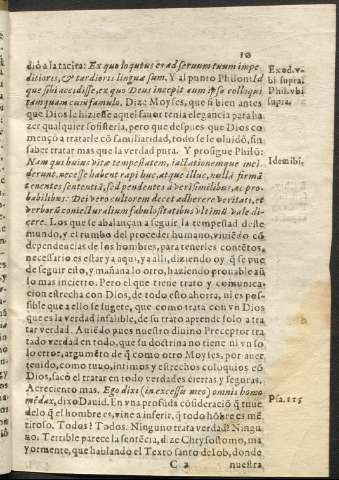 10
dió a la tacita: Ex quo loqutus es ad seruum tuum impe
ditioris, & tardioris linguæ sum. Y al punto Philon: Id
que sibi accidisse, ex quo Deus incepit cum ipso colloqui
tamquam cum famulo. Dize Moyses, que si bien antes
que Dios le hiziesse aquel fauor tenia elegancia para ha
zer qualquier sofisteria, pero que despues que Dios co
mençò a tratarle cõ familiaridad, todo se le oluidó, sin
saber tratar mas que la verdad pura. Y prosigue Philõ:
Nam qui huius vitæ tempestatem, iactationemque inci
derunt, necesse habent rapi huc, atque illuc, nulla firmã
tenentes sententiã, sed pendentes à verisimilibus, ac pro-
babilibus: Dei vero cultorem decet adherere veritati, et
verborũ coniecturalium fabulositatibus vltimũ vale di-
cere. Los que se abalançan a seguir la tempestad deste
mundo, y el rumbo del proceder humano, viuiẽdo cõ
dependencias de los hombres, para tenerles contẽtos,
necessario es estar ya aqui, ya alli, diziendo oy q̃ se pue
de seguir esto, y mañana lo otro, haziendo prouable aũ
lo mas incierto. Pero el que tiene trato y comunica-
cion estrecha con Dios, de todo esto ahorra, ni es pos-
sible que a ello se sugete, que como trata con vn Dios
que es la verdad infalible, de su trato aprende solo a tra
tar verdad. Auiẽdo pues nuestro diuino Preceptor tra
tado verdad en todo, que su doctrina no tiene ni vn so
lo error, argumẽto de q̃ como otro Moyses, por auer
tenido, como tuuo, intimos y estrechos coloquios cõ
Dios, sacó el tratar en todo verdades ciertas y seguras.
Acreciento mas. Ego dixi (in excessu meo) omnis homo
mẽdax, dixo Dauid. En vna profũda cõsideració q̃ tuue
de lo q̃ el hombre es, vine a inferir, q̃ todo hõbre es mẽ
tiroso. Todos? Todos. Ninguno trata verdad? Ningu
no. Terrible parece la sentẽcia, dize Chrysostomo, ma
yormente, que hablando el Texto santo de Iob, donde
C 2
nuestra
Exod. v-
bi supra.
Phil. vbi
supra.
Idem ibi.
Psa. 115